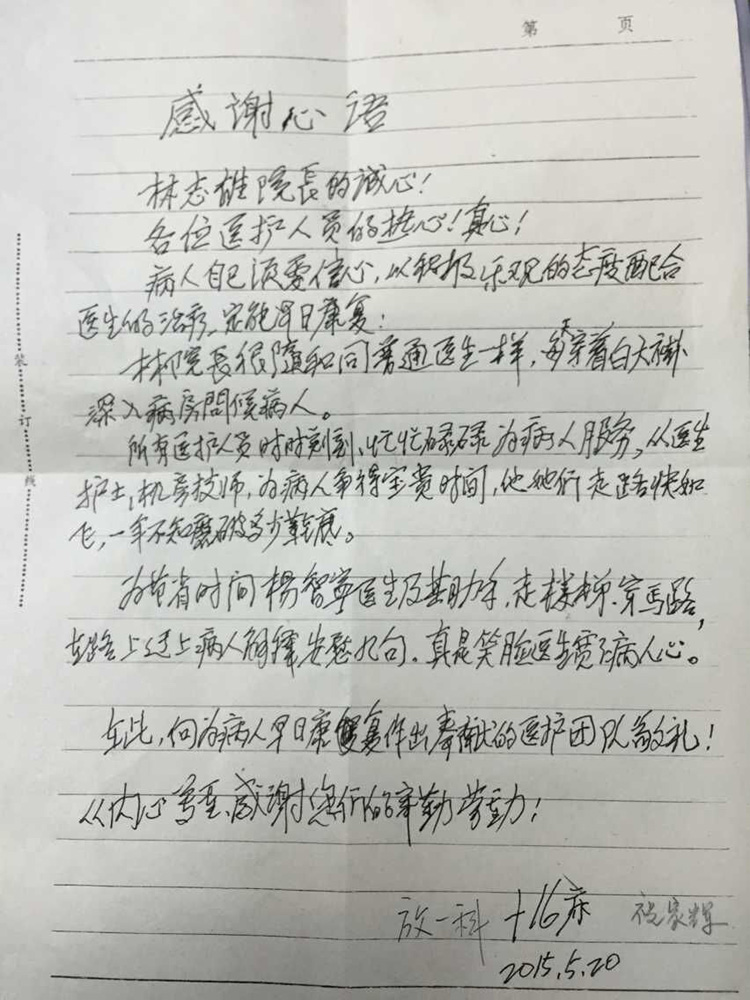 第 页
感谢心语
林志雄院長的诚心！
各位医护人员的热心！真心！
病人自己须要信心，以积极乐观的态度配合
医生的治疗、定能早日康复！
林院長很隨和同普通医生一样，每天穿着白大褂
深入病房問候病人。
所有医护人员时时刻刻、忙忙碌碌为病人服务，从医生
护士，机房技师，为病人争得宝贵时间，他她们走路快如
飞，一年不知磨破多少鞋底。
为节省时间杨智宁医生及其助手，走楼梯、穿马路，
在路上遇上病人解释安慰几句。真是笑脸医生赞了病人心。
在此，向为病人早日康复作出奉献的医护团队敬礼！
从内心尊重、感谢您们的辛勤劳动！
放一科 +16床 祝家辉
2015.5.20
装订线